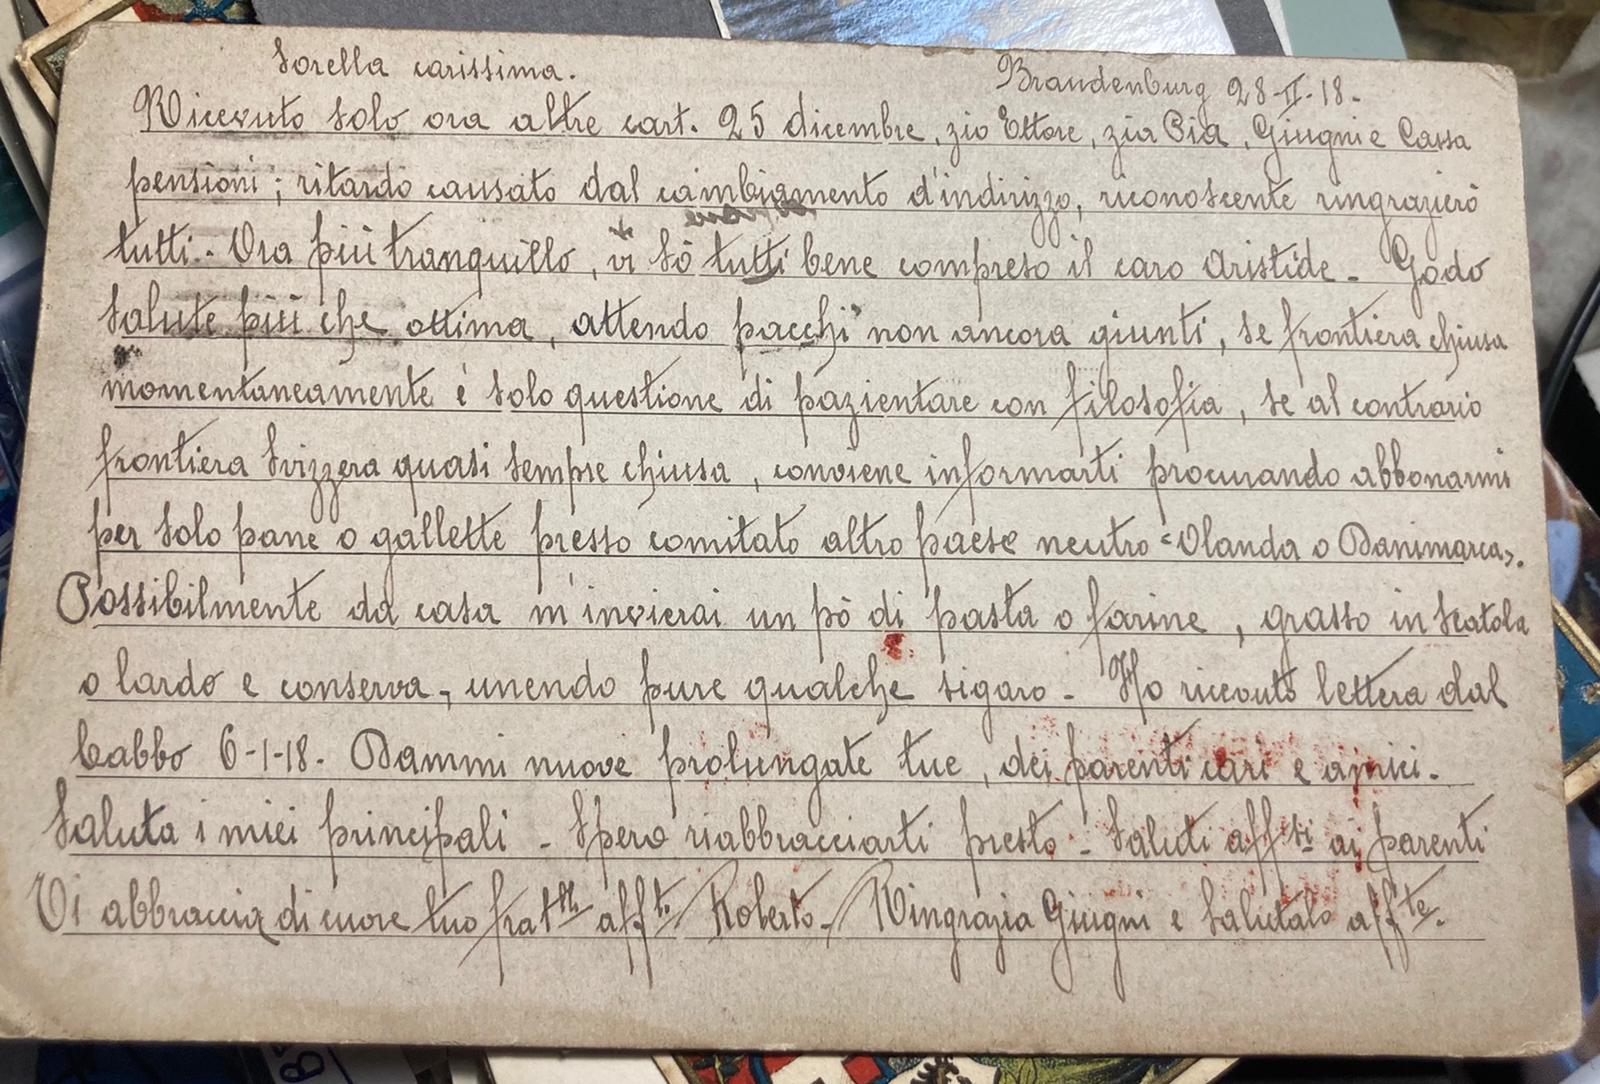 Sorella carissima.
Brandenburg 28-II-18.
Ricevuto solo ora altre cart. 25 dicembre, zio Ettore, zia Pia, Giugni e Cassa
pensioni; ritardo causato dal cambiamento d'indirizzo, riconoscente ringrazierò
tutti. Ora più tranquillo, vi sò tutti bene compreso il caro Aristide - Godo
salute più che ottima, attendo pacchi non ancora giunti, se frontiera chiusa
momentaneamente è solo questione di pazientare con filosofia, se al contrario
frontiera Svizzera quasi sempre chiusa, conviene informarti procurando abbonarmi
per solo pane o gallette presso comitato altro paese neutro "Olanda o Danimarca".
Possibilmente da casa m'invierai un pò di pasta o farine, grasso in scatola
o lardo e conserva, unendo pure qualche sigaro - Ho ricevuto lettera dal
babbo 6-1-18. Dammi nuove prolungate tue, dei parenti cari e amici.
Saluta i miei principali - Spero riabbracciarti presto - Saluti aff.sti ai parenti
Vi abbraccia di cuore tuo frat.llo aff.to Roberto - Ringrazia Giugni e salutalo aff.te.